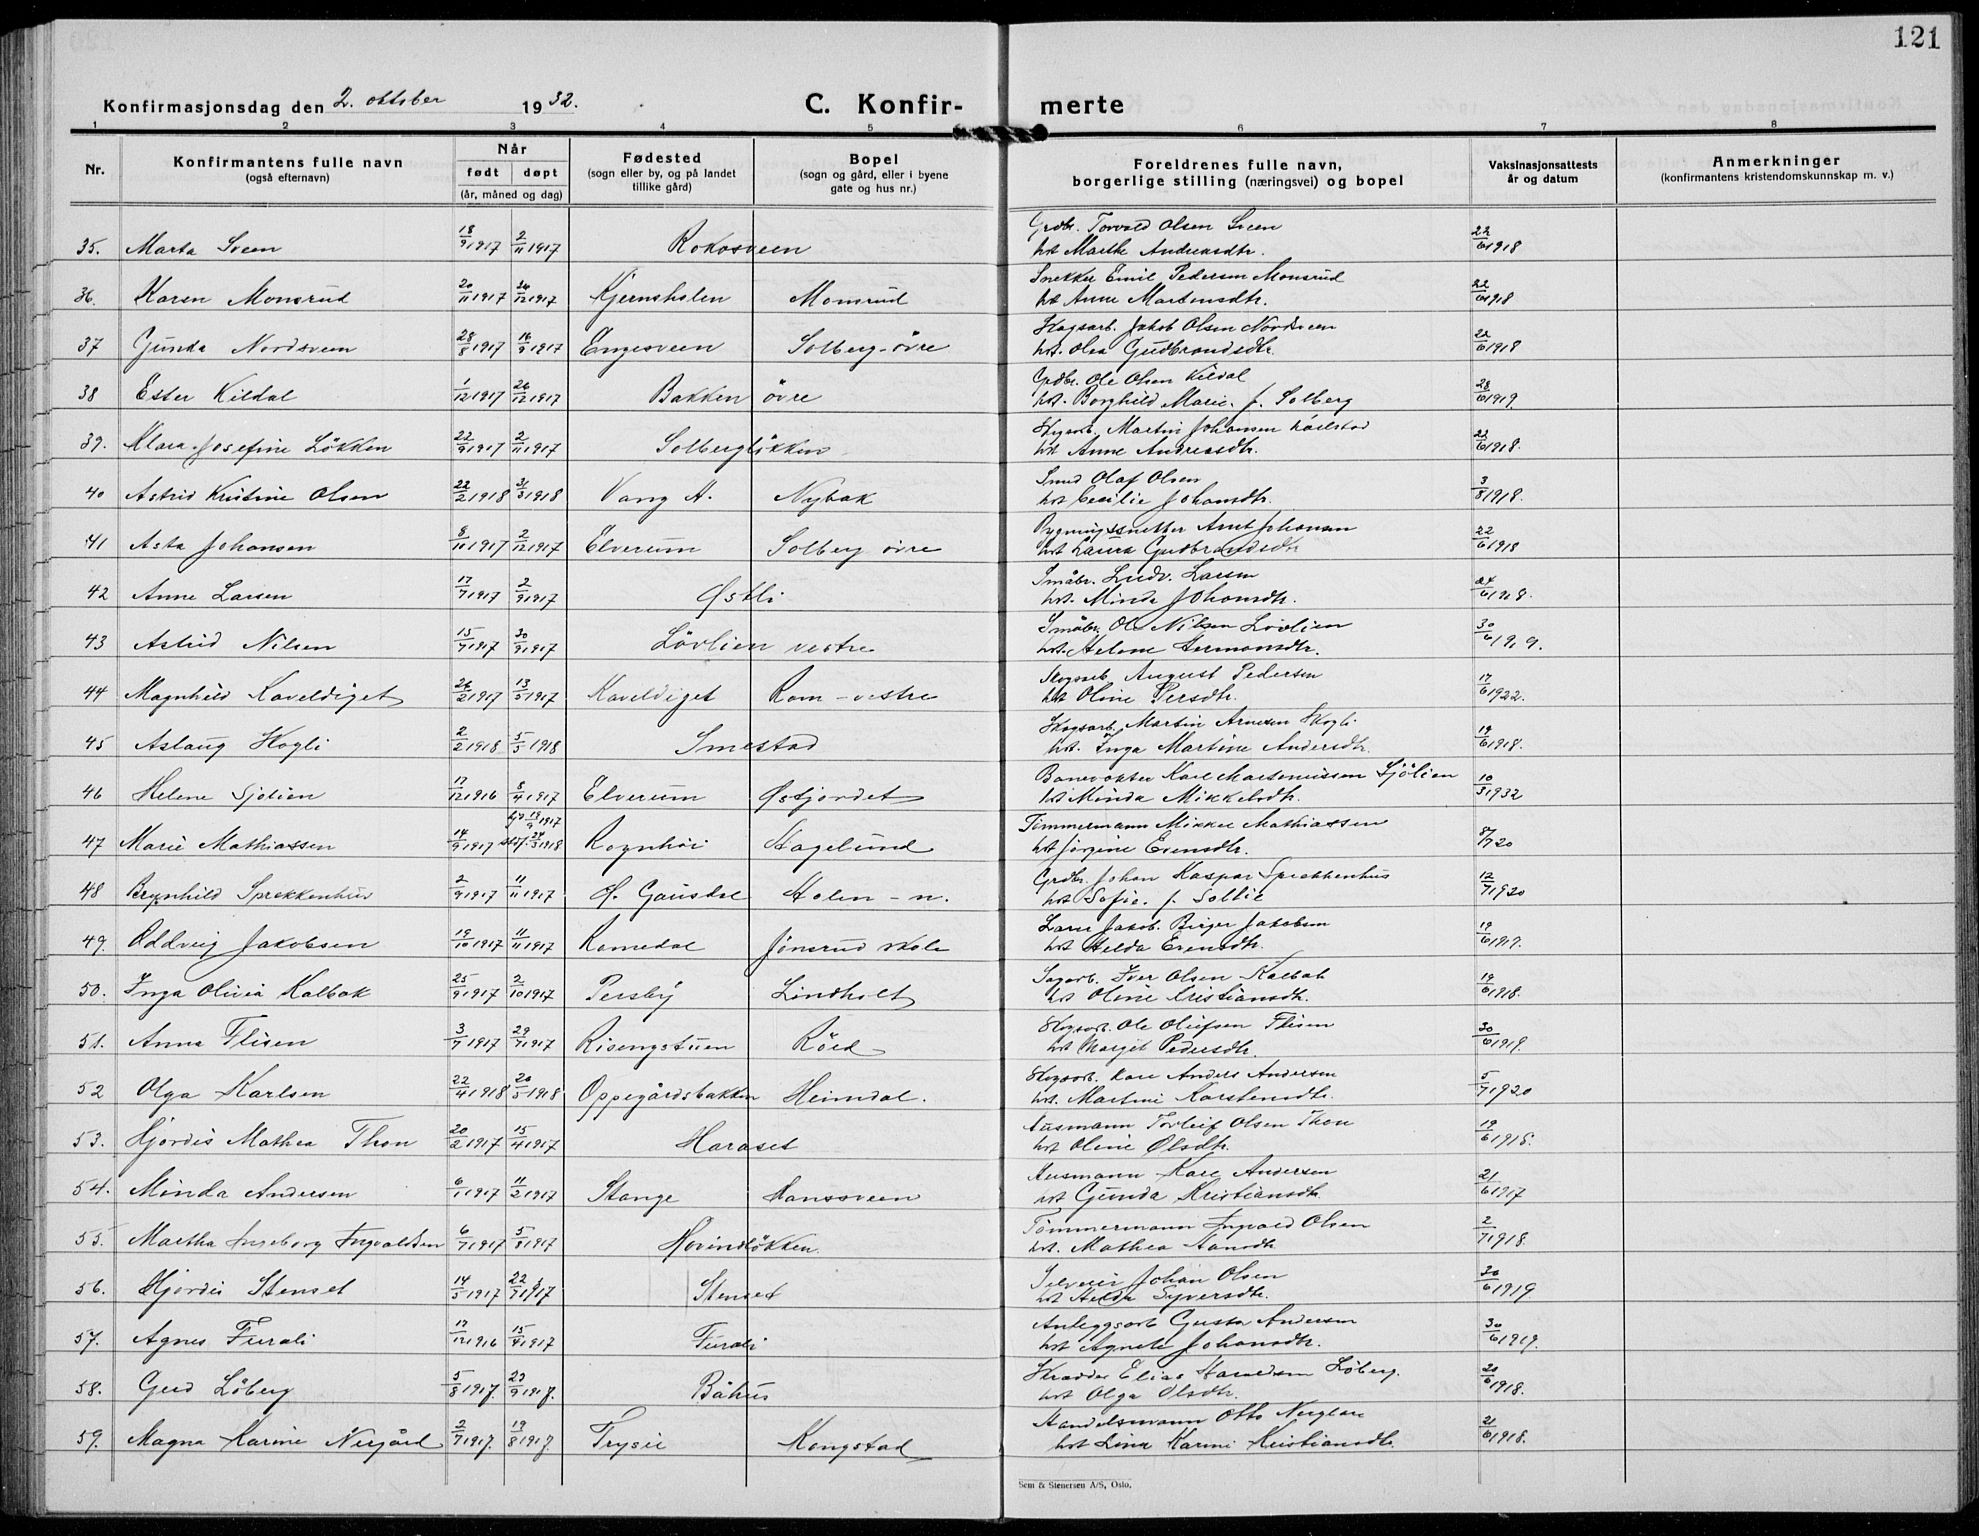 121
Konfirmasjonsdag den 2. oktober 1932. C. Konfir- merte
1 2 3 4 5 6 7 8
Nr. Konfirmantens fulle navn (også efternavn) Når født døpt (år, måned og dag) Fødested (sogn eller by, og på landet tillike gård) Bopel (sogn og gård, eller i byene gate og hus nr.) Foreldrenes fulle navn, borgerlige stilling (næringsvei) og bopel Vaksinasjonsattests år og datum Anmerkninger (konfirmantens kristendomskunnskap m. v.)
35. Marta Sveen 18/9 1917 2/11 1917 Rokosveen Grdbr. Torvald Olsen Sveen 22/6 1918
hst Marthe Andreasdtr.
36. Karen Monsrud 20/11 1917 26/12 1917 Kjernsholen Monsrud Snekker Emil Pedersen Monsrud 22/6 1918
hst Anne Martinsdtr.
37 Gunda Nordsveen 28/8 1917 16/9 1917 Engesveen Solberg-övre Skogsarb. Jakob Olsen Nordsveen 22/6 1918
hst. Olea Gudbrandsdtr.
38 Ester Kildal 1/12 1917 26/12 1917 Bakken övre Grdbr. Ole Olsen Kildal 28/6 1919.
hst. Borghild Marie f. Solberg
39. Klara Josefine Lökken 22/9 1917 2/11 1917 Solberglökken Martin Johansen 22/6 1918.
hst Anne Andreasdtr.
40 Astrid Kristine Olsen 22/2 1918 31/3 1918 Vang H. Nybak Smed Olaf Olsen 3/8 1918.
hst Cecilie Johansdtr.
41 Asta Johansen 8/10 1917 2/12 1917 Elverum Solberg övre Bygningssnekker Arnt Johansen 22/6 1918
hst Laura Gudbrandsdtr
42 Anne Larsen 17/7 1917 2/9 1917 Østli Småbr. Ludv. Larsen 24/6 1918.
hst. Minda Johansdtr.
43 Astrid Nilsen 15/7 1917 30/9 1917 Lövlien vestre Småbr. Ole Nilsen Lövlien 30/6 1919.
hst. Helene Hermansdtr.
44 Magnhild Kaveldiget 26/2 1917 13/5 1917 Kaveldiget Rom-vestre Skogsarb August Pedersen 17/6 1922.
hst Oline Persdtr.
45 Aslaug Skogli 2/2 1918 5/5 1918 Smestad Skogsarb. Martin Arnesen Skogli 19/6 1918.
hst. Inga Martine Andersdtr.
46 Helene Sjölien 17/12 1916 8/4 1917 Elverum Østjordet Banevokter Karl Martiniussen Sjölien 10/3 1932
hst Minda Mikkelsdtr.
47 Marie Mathiassen 14/9 1917 hjd 19/9 1917 stdf. 24/3 1918 Rognhöi Hagelund Tömmermann Mikkel Mathiassen 8/7 20
hst Jörgine Evensdtr.
48 Brynhild Sprekkenhus 2/9 1917 11/11 1917 Ø. Gausdal Holen-n. Grdbr. Johan Kaspar Sprekkenhus 12/7 1920
hst Sofie f. Sollie
49. Oddveig Jakobsen 19/10 1917 11/11 1917 Romedal Jönsrud skole Lærer Jakob Birger Jakobsen 19/6 1919.
hst Helda Evensdtr.
50. Inga Olivia Kalbak 25/9 1917 2/10 1917 Persby Lindholt Sagarb. Iver Olsen Kalbak 19/6 1918.
hst Oline Kristiansdtr.
51. Anna Flisen 3/7 1917 29/7 1917 Risengstuen Röed Skogsarb. Ole Olufsen Flisen 30/6 1919.
hst Margit Pedersdtr.
52 Olga Karlsen 22/4 1918 20/5 1918 Oppegårdsbakken Heimdal. Skogsarb. Karl Anders Andersen 5/7 1920
hst. Martine Karstensdtr.
53. Hjördis Mathea Thon 20/2 1917 15/4 1917 Haraset Husmann Torleif Olsen Thon 19/6 1918.
hst Oline Olsdtr.
54. Minda Andersen 6/1 1917 11/2 1917 Stange Hanssveen Husmann Karl Andersen 21/6 1917
hst Gunda Kristiansdtr.
55. Martha Ingeborg Ingvaldsen 6/7 1917 5/8 1917 Hovindlökken Tömmermann Ingvald Olsen 2/7 1918.
hst. Mathea Hansdtr
56. Hjördis Stenset 14/5 1917 22/7 1917 Stenset Selveier Johan Olsen 30/6 1919
hst Helda Syversdtr.
57. Agnes Furali 17/12 1916 15/4 1917 Furali Anleggsarb Gustav Andersen 30/6 1919.
hst Agnete Johansdtr.
58. Gerd Löberg 5/8 1917. 23/9 1917. Båhus Skredder Elias Löberg. 20/6 1918.
hst Olga Olsdtr.
59. Magna Karine Nergård 2/7 1917. 19/8 1917. Trysil Kongstad Handelsmann Otto Nergård 21/6 1918.
hst Lina Karine Kristiansdtr.
Sem & Stenersen A/S, Oslo.